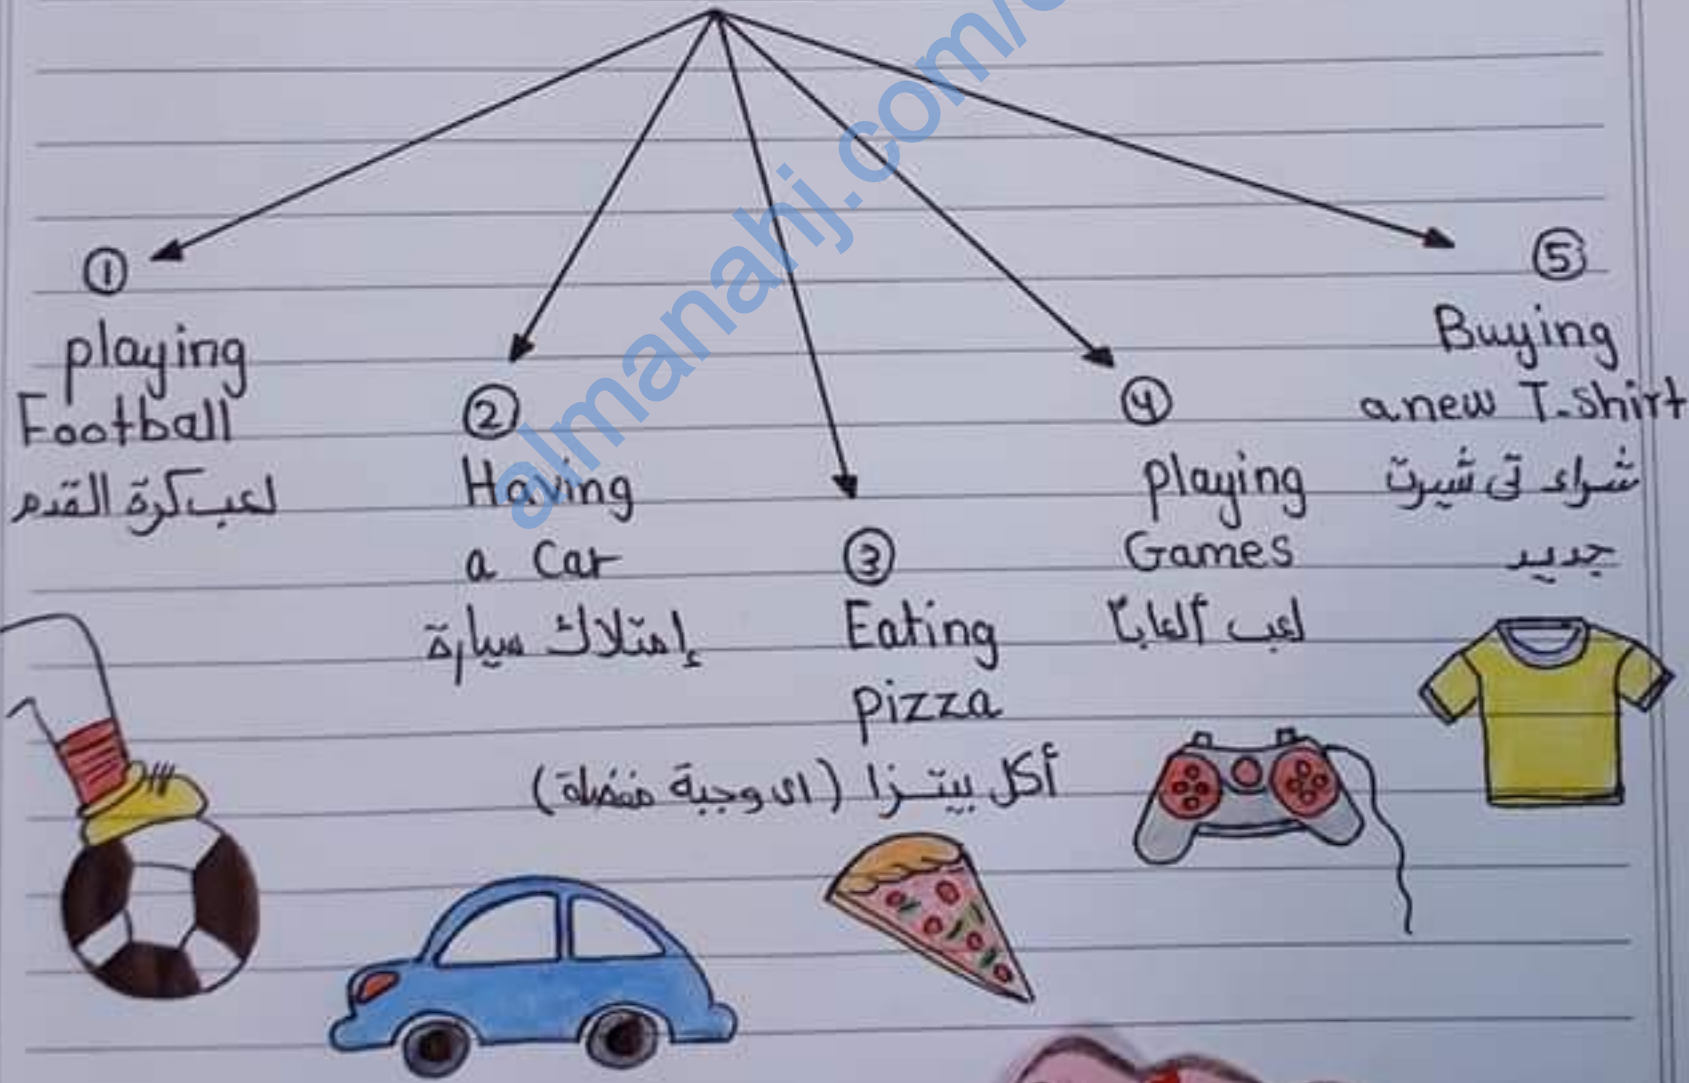 ①
playing
Football
لعب كرة القدم
②
Having
a Car
إمتلاك سيارة
③
Eating
pizza
أكل بيتزا (اى وجبة مفضلة)
④
playing
Games
لعب ألعاباً
⑤
Buying
a new T-shirt
شراء تى شيرت
جديد
almanahj.com/